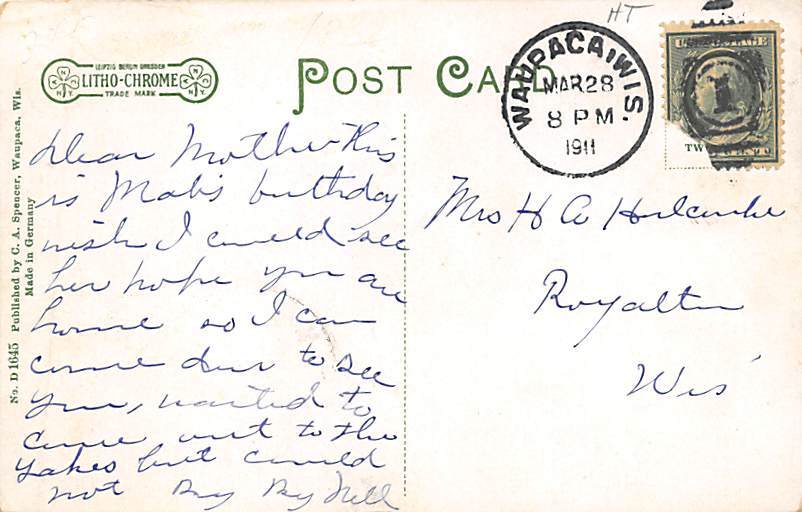 HT
LEIPZIG BERLIN DRESDEN
LITHO-CHROME
TRADE MARK
POST CARD
WAUPACA, WIS.
MAR 28
8 PM
1911
1
Dear Mother This
is Mab's birthday
wish I could see
her hope you are
home so I can
come down to see
you, wanted to
come out to the
Lakes but could
not By By Nell
Mrs H A Holcombe
Royalton
Wis
No. D 1645 Published by C. A. Spencer, Waupaca, Wis.
Made in Germany